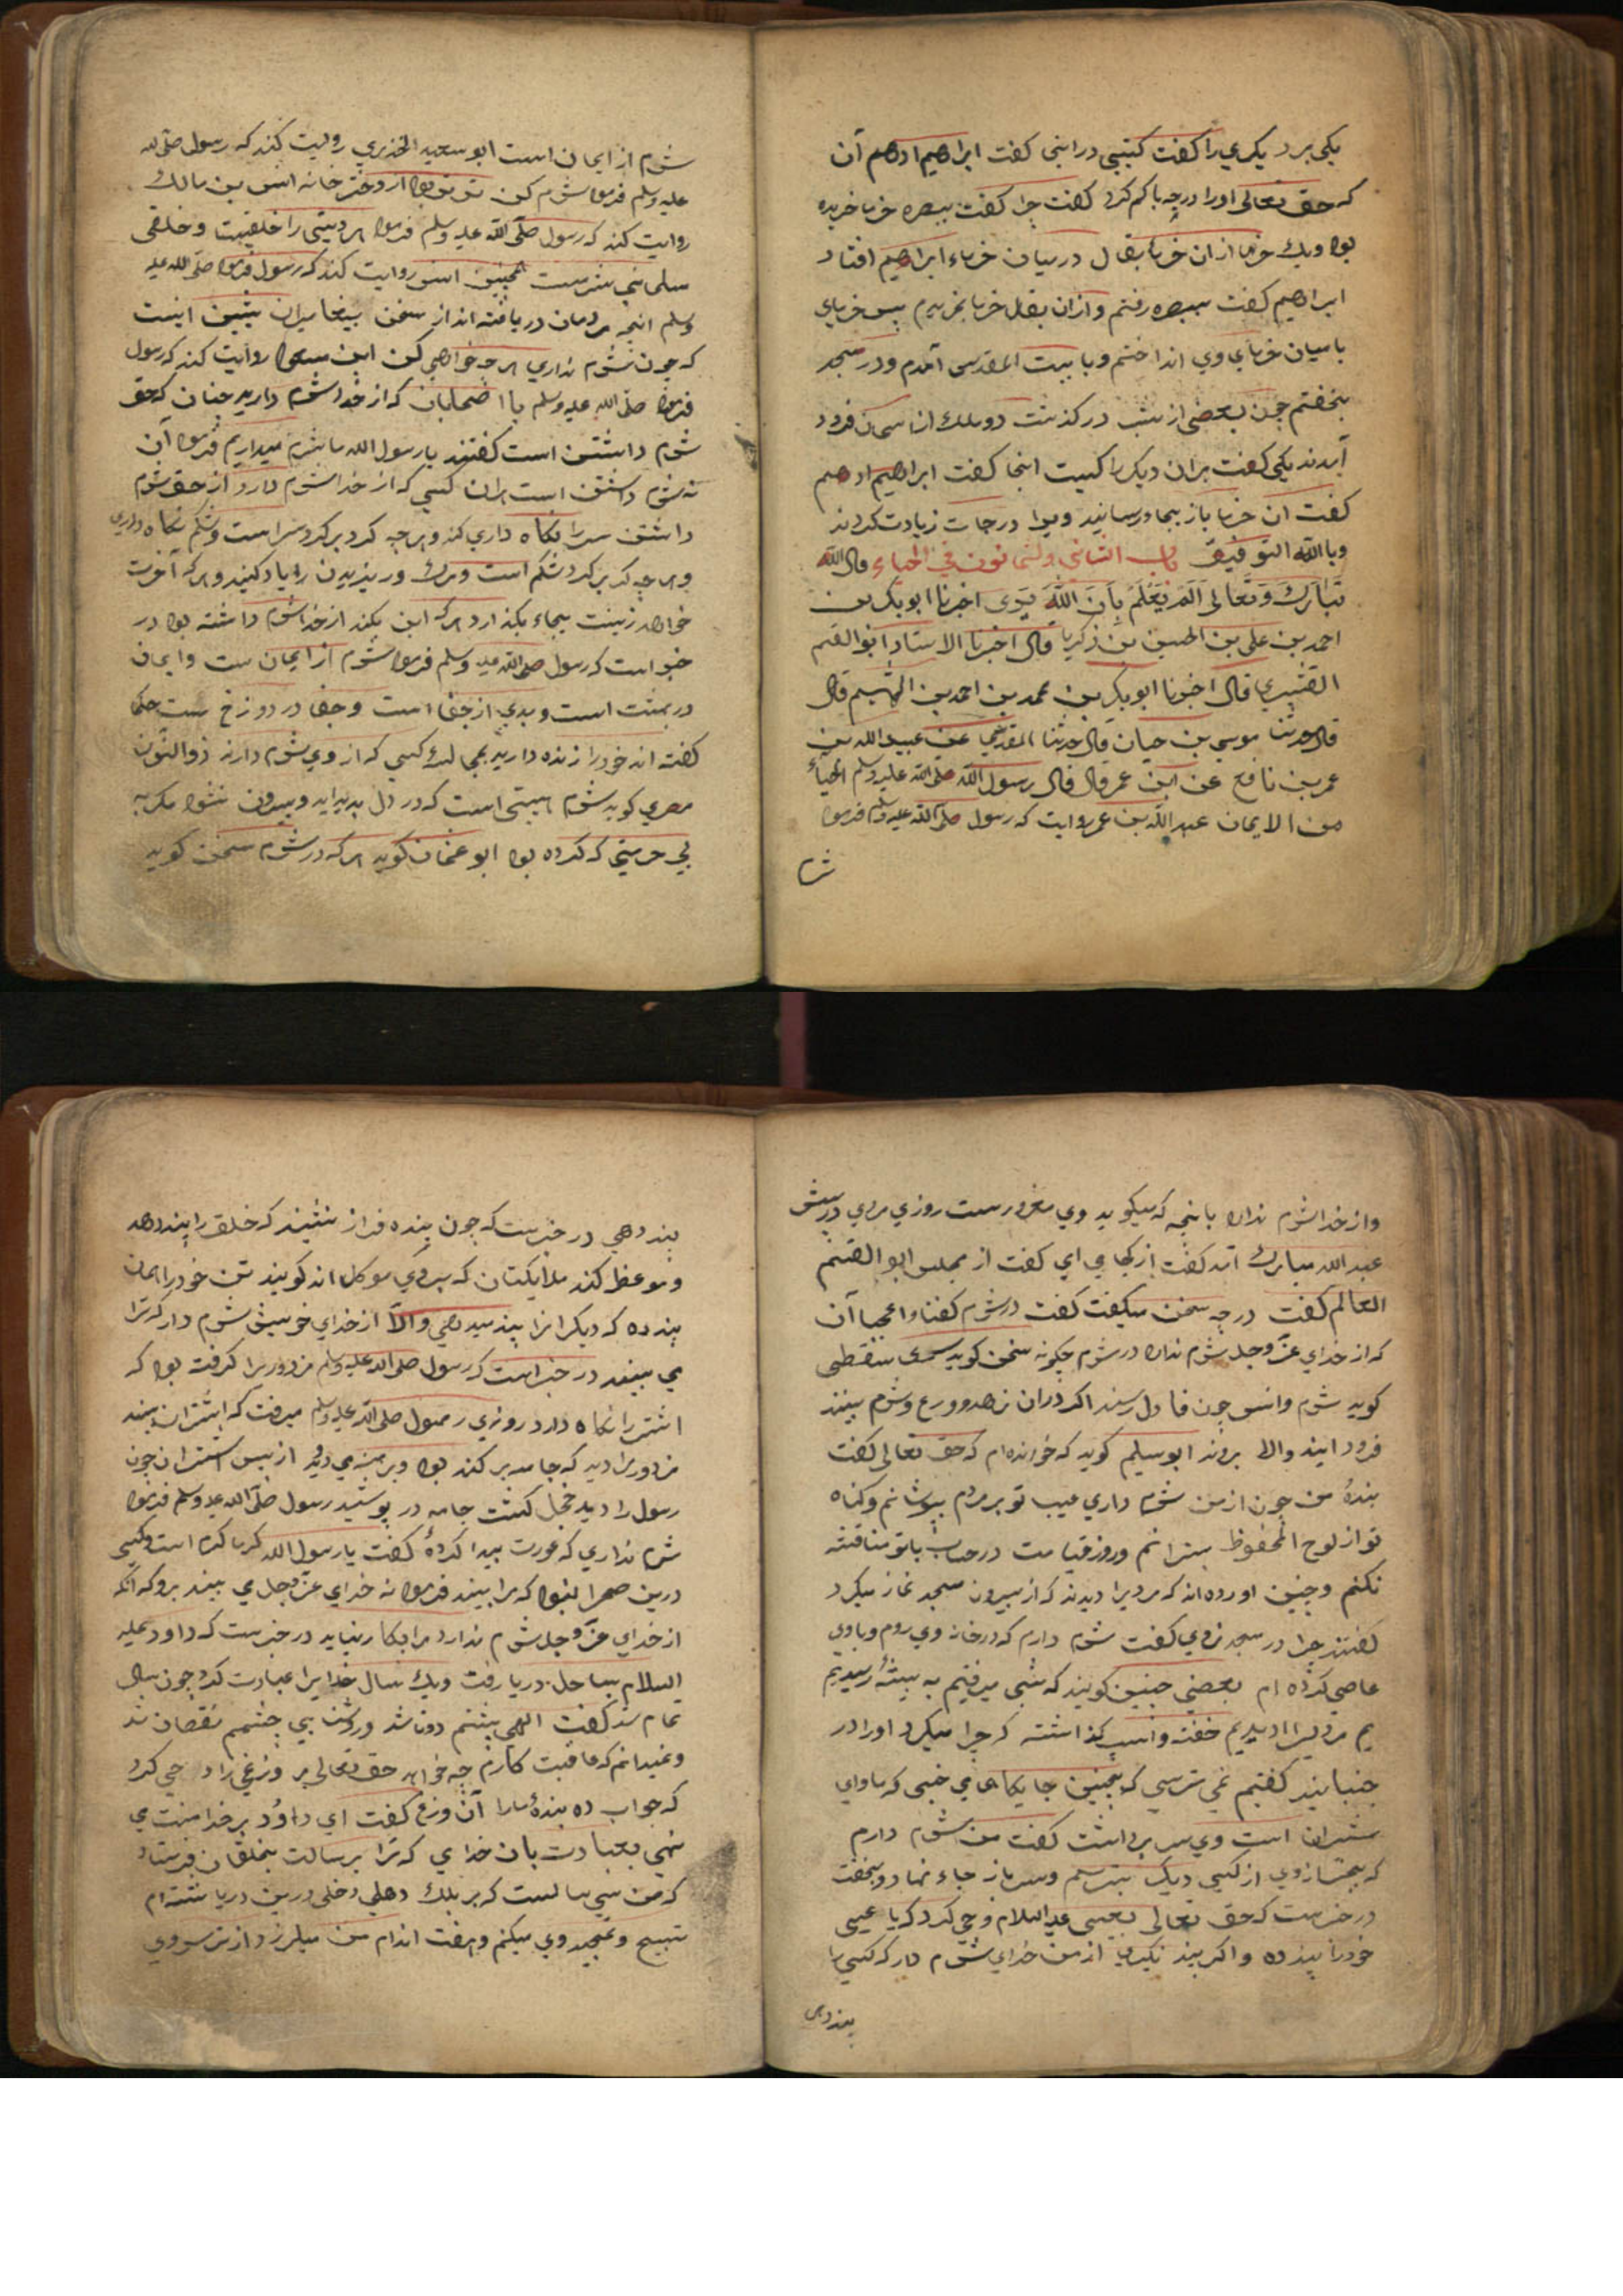 یکی بر دیگری را گفت کیستی در اینجا گفت ابراهیم ادهم آن
که حق تعالی اورا درجه با کم کرد گفت چرا گفت ببصره خرما خریده
بود ویک خرما از آن خرما بقال در میان خرماء ابراهیم افتاد
ابراهیم گفت ببصره رفتم و از ان بقال خرما بخریدم پس خرمای
با میان خرمای وی انداختم و با بیت المقدس آمدم و در مسجد
بخفتم چون بعضی از شب در گذشت دو ملک از آسمان فرود
آمدند یکی گفت بران دیگر را کیست اینجا گفت ابراهیم ادهم
گفت ان خرما باز بجا رسانید ویرا درجات زیادت کردند
وبالله التوفیق باب الثانی والثمانون فی الحیاء قال الله
تبارک وتعالی الم یعلم بان الله یری اخبرنا ابو بکر بن
احمد بن علی بن الحسین بن زکریا قال اخبرنا الاستاد ابو القسم
القشیری قال اخبرنا ابو بکر بن محمد بن احمد بن الهیثم قال
قال حدثنا موسی بن حیان قال حدثنا المقدمی عن عبید الله بن
عمر بن نافع عن ابن عمر قال قال رسول الله صلی الله علیه وسلم الحیاء
من الایمان عبد الله بن عمر روایت که رسول صلی الله علیه وسلم فرمود
شرم
شرم از ایمان است ابو سعید الخدری روایت کند که رسول صلی الله
علیه وسلم فرمود شرم کن تر بود از دختر خانه انس بن مالک
روایت کند که رسول صلی الله علیه وسلم فرمود هر دینی را خلقیست وخلقی
مسلمانی شرمست همچنین انس روایت کند که رسول فرمود صلی الله علیه
وسلم انچه مردمان دریافته اند از سخن پیغامبران پیشین اینست
که چون شرم نداری هر چه خواهی کن ابن مسعود روایت کند که رسول
فرمود صلی الله علیه وسلم با اصحابان که از خدا شرم دارید چنان که حق
شرم داشتن است گفتند یا رسول الله ما شرم میداریم فرمود آن
نه شرم داشتن است بران کسی که از خدا شرم دارد از حق شرم
داشتن سر را نگاه داری کند وهر چه گرد بر گرد سر است وشکم نگاه داری
وهر چه گرد بر گرد شکم است ومرک وریزیدن را یاد کنید وهر که آخرت
خواهد زینت بجاء بگذارد هر که این بکند از خدا شرم داشته بود در
خبر است که رسول صلی الله علیه وسلم فرمود شرم از ایمان ست وایمان
در بهشت است وبدی از جفا است وجفا در دوزخ ست حکما
گفته اند خود را زنده دارید بمجالست کسی که از وی شرم دارند ذو النون
مصری گوید شرم هیبتی است که در دل پدید اید وبیرون نشود مگر به
بی حرمتی که کرده بود ابو عثمان گوید هر که در شرم سخن گوید
واز خدا شرم ندارد بانچه که میگوید وی مغرورست روزی مردی در پیش
عبد الله مبارک آمد گفت از کجا می ای گفت از مجلس ابو القسم
العالم گفت در چه سخن میگفت گفت در شرم گفتا واعجبا آن
که از خدای عز وجل شرم ندارد در شرم چگونه سخن گوید سری سقطی
گوید شرم وانس چون فا دل رسند اگر دران زهد وورع وشرم بینند
فرود ایند والا بروند ابو سلیم گوید که خوانده ام که حق تعالی گفت
بندهٔ من چون از من شرم داری عیب تو بر مردم بپوشانم وگناه
تو از لوح المحفوظ بسترانم وروز قیامت در حساب با تو مناقشه
نکنم وچنین اورده اند که مردیرا دیدند که از بیرون مسجد نماز میکرد
گفتند چرا در مسجد نروی گفت شرم دارم که در خانه وی روم وبا وی
عاصی کرده ام بعضی چنین گویند که شبی میرفتیم به بیشهٔ رسیدیم
یم مردیرا دیدیم خفته واسپ گذاشته که چرا میکرد اورا در
جنبانید گفتیم نمی ترسی که بچنین جایگاهی می خسپی که ماوای
شیران است وی سر بر داشت گفت من شرم دارم
که بجز از وی از کسی دیگر بترسم وسر باز جاء نهاد وبخفت
در خبرست که حق تعالی بعیسی علیه السلام وحی کرد که یا عیسی
خود را پند ده و اگر پند نگیری از من خدای شرم دار که کسی را
پند دهی
پند دهی در خبرست که چون بنده فراز نشیند که خلق را پند دهد
وموعظه کند ملایکتان که بر وی موکل اند گویند تن خود را همان
پند ده که دیگرانرا پند میدهی والا از خدای خویش شرم دار که ترا
می بیند در خبر است که رسول صلی الله علیه وسلم مزدوریرا گرفته بود که
اشتر را نگاه دارد روزی رسول صلی الله علیه وسلم میرفت که اشتران بیند
مزدور را دید که جامه بر کنده بود وبرهنه می دوید از پس اشتران چون
رسول را دید خجل گشت جامه در پوشید رسول صلی الله علیه وسلم فرمود
شرم نداری که عورت پیدا کردهٔ گفت یا رسول الله گرما گرم است وکسی
درین صحرا نبود که مرا بیند فرمود نه خدای عز وجل می بیند برو که آنکه
از خدای عز وجل شرم ندارد مرا بکار نیاید در خبرست که داود علیه
السلام بساحل دریا رفت ویک سال خدایرا عبادت کرد چون سال
تمام شد گفت الهی پشتم دوتا شد وروشنایی چشمم نقصان شد
ونمیدانم که عاقبت کارم چه خواهد حق تعالی بر وزغی را وحی کرد
که جواب ده بندهٔ مارا آن وزغ گفت ای داود بر خدا منت می
نهی بعبادت بان خدای که ترا برسالت بخلقان فرستاد
که من سی سالست که بر درین دریا نشسته ام
تسبیح وتمجید وی میکنم وهفت اندام من میلرزد از ترس وی